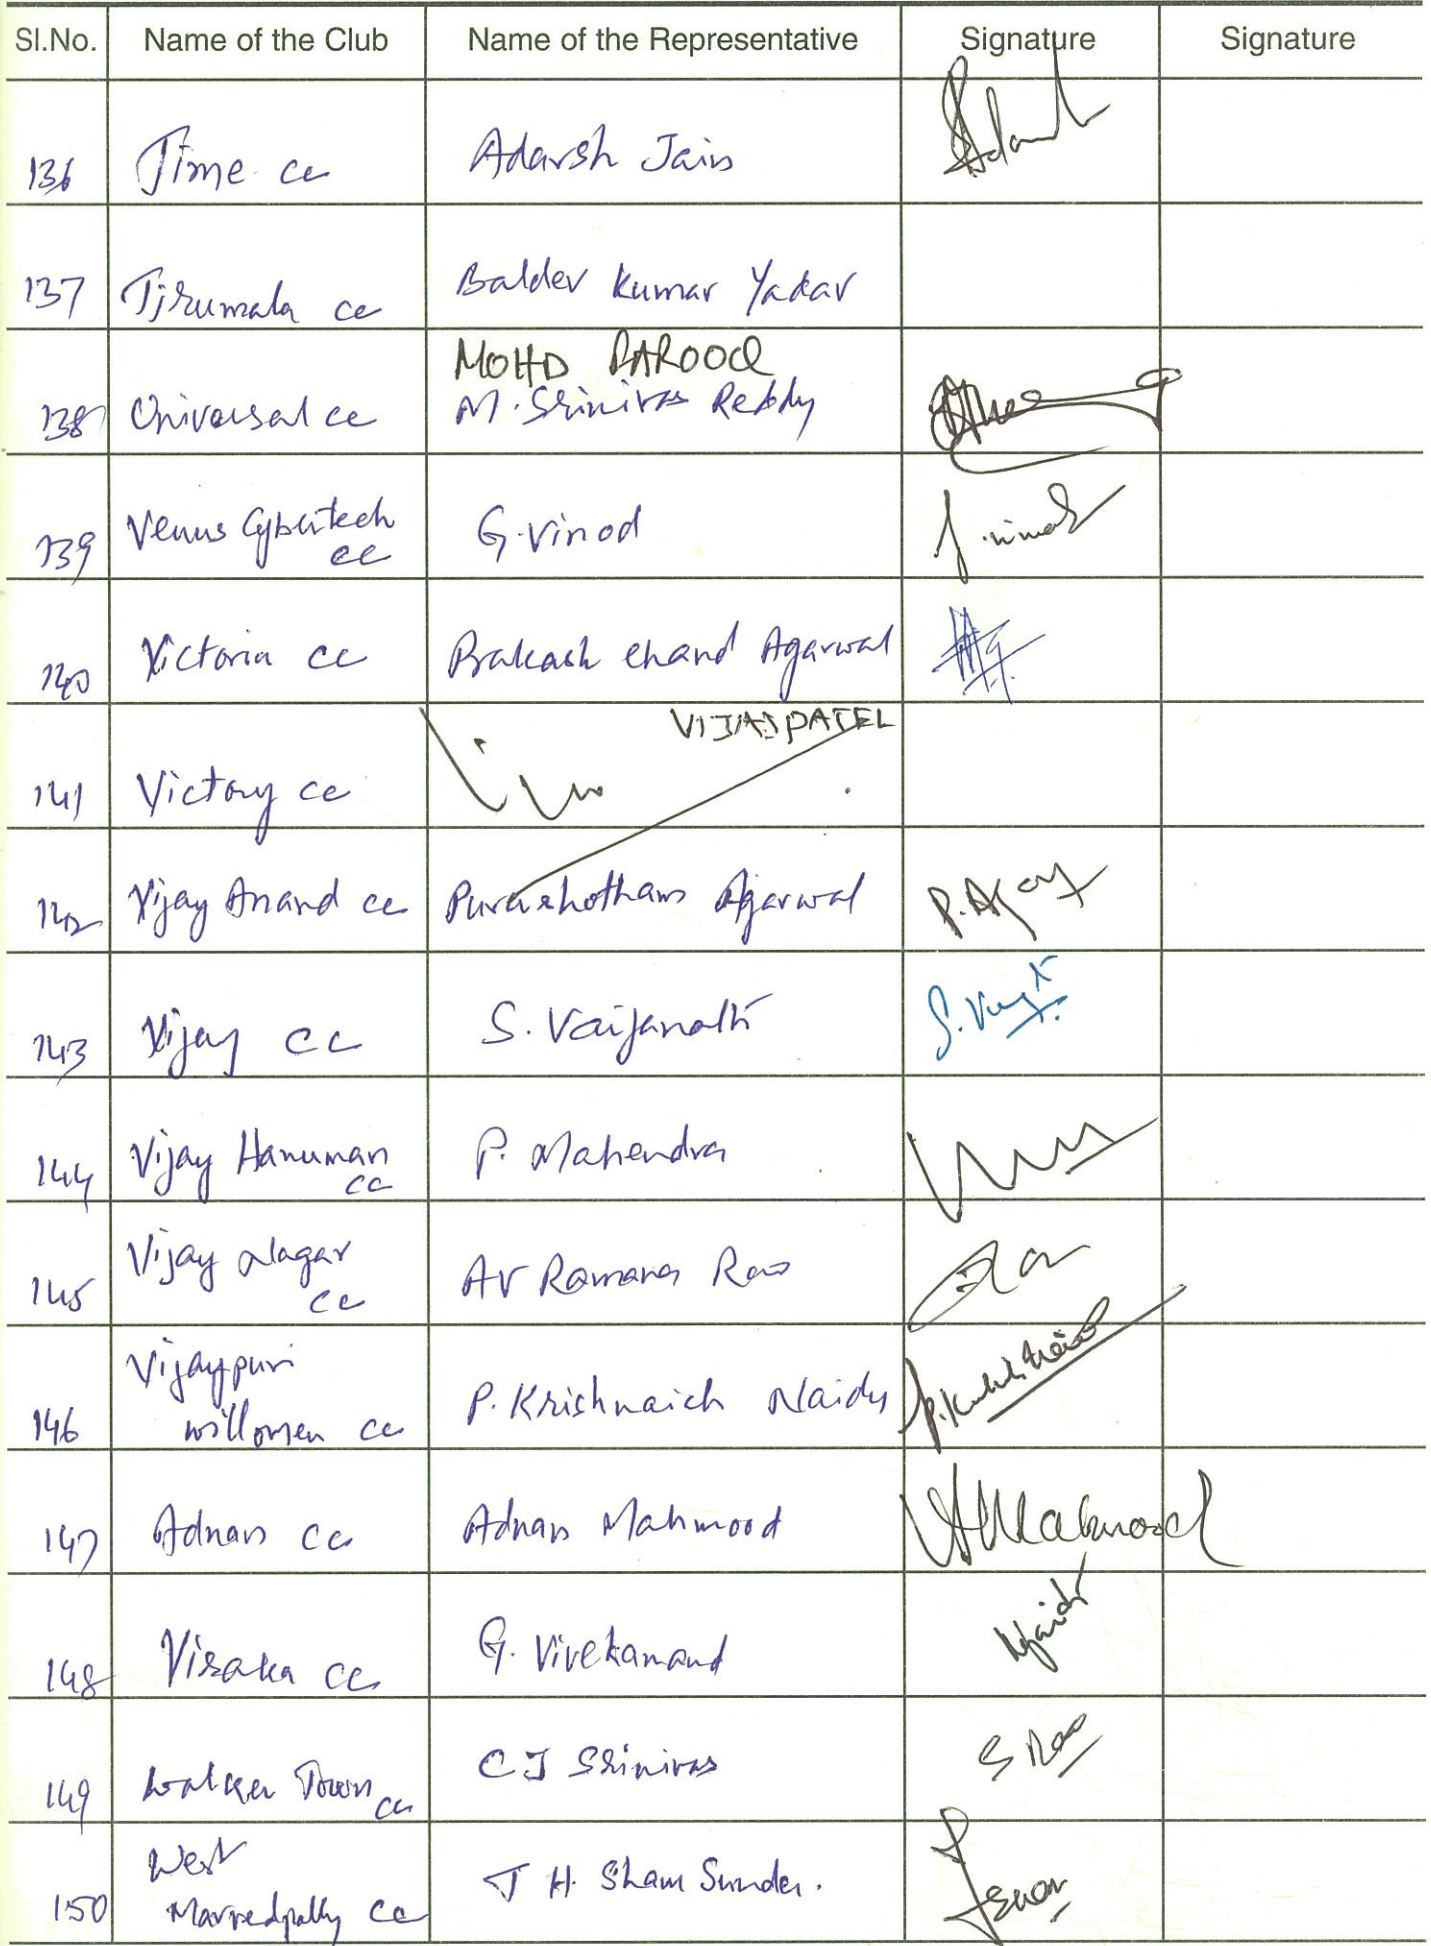 Sl.No. Name of the Club Name of the Representative Signature Signature
136 Time cc Adarsh Jain
137 Tirumala cc Baldev Kumar Yadav
MOHD FAROOQ
138 Universal cc M. Srinivas Reddy
139 Venus Cybertech G. Vinod
cc
140 Victoria cc Prakash Chand Agarwal
VIJAY PATEL
141 Victory cc
142 Vijay Anand cc Purushotham Agarwal P. Ajay
143 Vijay cc S. Vaijanath
144 Vijay Hanuman P. Mahendra
cc
145 Vijay Nagar AV Ramana Rao
cc
Vijaypuri
146 willomen cc P. Krishnaiah Naidu
147 Adnan cc Adnan Mahmood AMahmood
148 Visaka cc G. Vivekanand
149 Walker Town CJ Srinivas S Rao
cc
West
150 Marredpally cc T H. Sham Sunder.